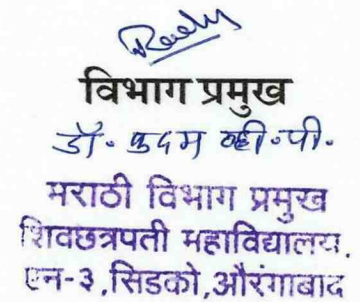 विभाग प्रमुख
डॉ. कदम व्ही.पी.
मराठी विभाग प्रमुख
शिवछत्रपती महाविद्यालय,
एन-३,सिडको,औरंगाबाद